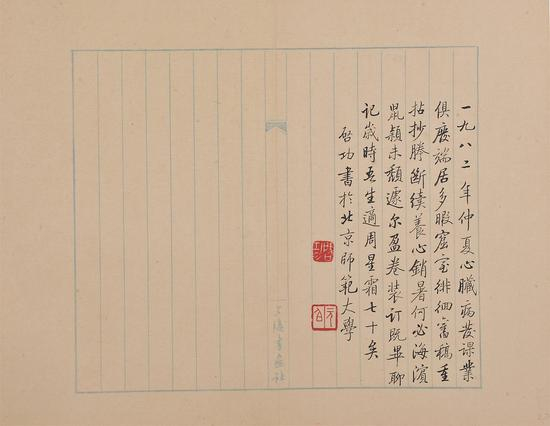 一九八二年仲夏心臟病發課業
俱廢端居多暇窟室徘徊舊稿重
拈抄謄斷續養心銷暑何必海濱
鼠穎未頹遽尔盈卷裝訂既畢聊
記歲時吾生適周星霜七十矣
啓功書於北京師範大學
啓功
元白
上海書画社